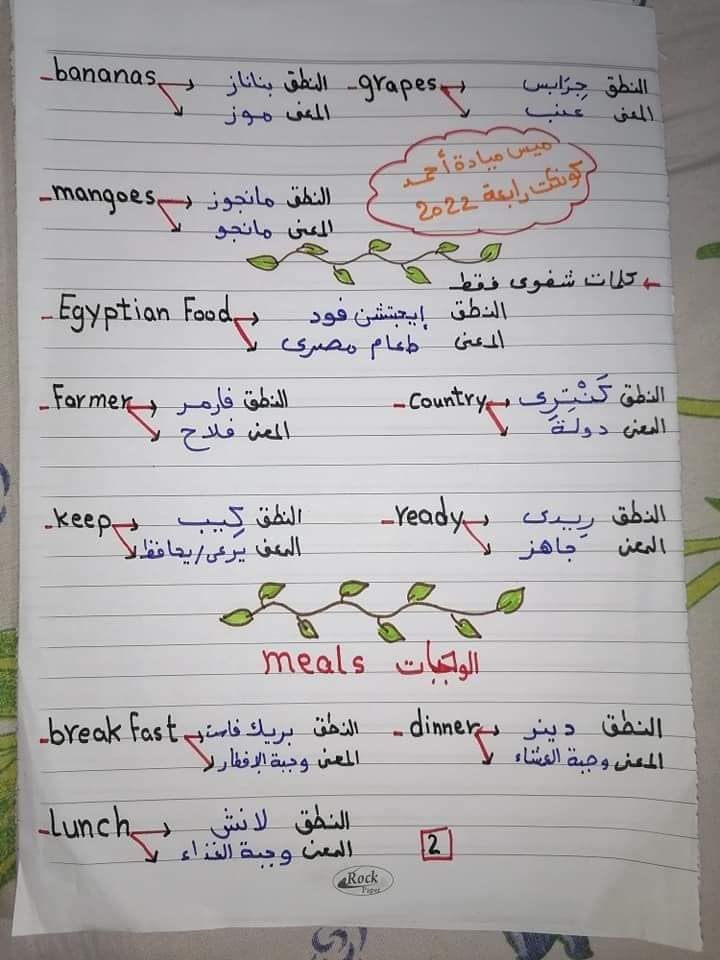 -bananas النطق بناناز -grapes النطق جرابس
المعنى موز المعنى عنب
ميس ميادة أحمد
كونكت رابعة 2022
-mangoes النطق مانجوز
المعنى مانجو
كلمات شفوى فقط
-Egyptian Food النطق إيجبتشن فود
المعنى طعام مصرى
-Farmer النطق فارمر -country النطق كَنْترِى
المعنى فلاح المعنى دولة
-keep النطق كِيب -ready النطق رِيدى
المعنى يرعى/يحافظ المعنى جاهز
meals الوجبات
-breakfast النطق بريك فاست -dinner النطق دينر
المعنى وجبة الإفطار المعنى وجبة العشاء
-Lunch النطق لانش
المعنى وجبة الغذاء
2
Rock
Paper